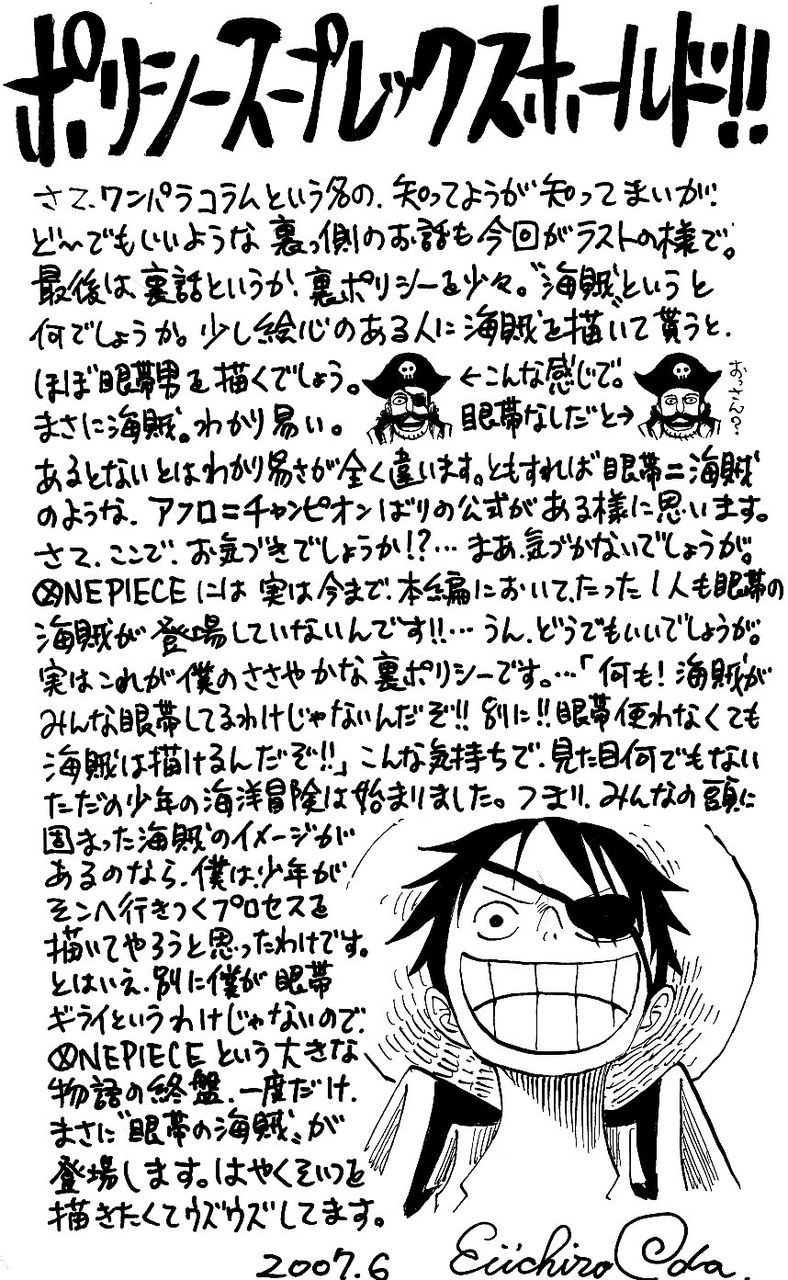 ポリシースープレックスホールド!!
さて、ワンパラコラムという名の、知ってようが知ってまいが、
ど〜でもいいような裏っ側のお話も今回がラストの様で。
最後は、裏話というか、裏ポリシーを少々。〝海賊〟というと
何でしょうか。少し絵心のある人に海賊を描いて貰うと、
ほぼ眼帯男を描くでしょう。
まさに海賊。わかり易い。
←こんな感じで。
眼帯なしだと→
おっさん?
あるとないとはわかり易さが全く違います。ともすれば眼帯=海賊
のような、アフロ=チャンピオンばりの公式がある様に思います。
さて、ここで、お気づきでしょうか!?…まあ、気づかないでしょうが。
ONE PIECEには実は今まで、本編において、たった1人も眼帯の
海賊が登場していないんです!!…うん、どうでもいいでしょうが。
実はこれが僕のささやかな裏ポリシーです。…「何も!海賊が
みんな眼帯してるわけじゃないんだぞ!!別に!!眼帯使わなくても
海賊は描けるんだぞ!!」こんな気持ちで、見た目何でもない
ただの少年の海洋冒険は始まりました。つまり、みんなの頭に
固まった海賊のイメージが
あるのなら、僕は、少年が
そこへ行きつくプロセスを
描いてやろうと思ったわけです。
とはいえ、別に僕が眼帯
ギライというわけじゃないので、
ONE PIECEという大きな
物語の終盤、一度だけ、
まさに〝眼帯の海賊〟が
登場します。はやくそいつを
描きたくてウズウズしてます。
2007.6 Eiichiro Oda.